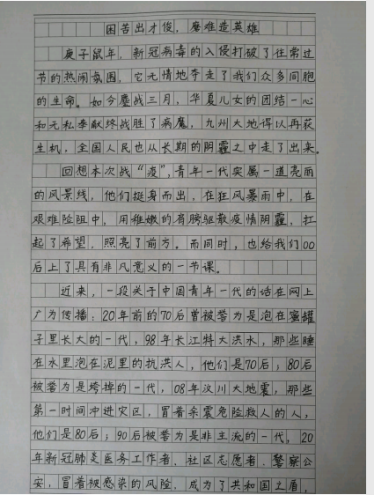 困苦出才俊，磨难造英雄
庚子鼠年，新冠病毒的入侵打破了往常过
节的热闹氛围，它无情地夺走了我们众多同胞
的生命。如今鏖战三月，华夏儿女的团结一心
和无私奉献终战胜了病魔，九州大地得以再获
生机，全国人民也从长期的阴霾之中走了出来。
回想本次战“疫”，青年一代实属一道亮丽
的风景线，他们挺身而出，在狂风暴雨中，在
艰难险阻中，用稚嫩的肩膀驱散疫情阴霾，扛
起了希望，照亮了前方。而同时，也给我们00
后上了具有非凡意义的一节课。
近来，一段关于中国青年一代的话在网上
广为传播：20年前的70后曾被誉为是泡在蜜罐
子里长大的一代，98年长江特大洪水，那些睡
在水里泡在泥里的抗洪人，他们是70后；80后
被誉为是垮掉的一代，08年汶川大地震，那些
第一时间冲进灾区，冒着余震危险救人的人，
他们是80后；90后被誉为是非主流的一代，20
年新冠肺炎医务工作者、社区志愿者、警察公
安，冒着被感染的风险，成为了共和国之盾，